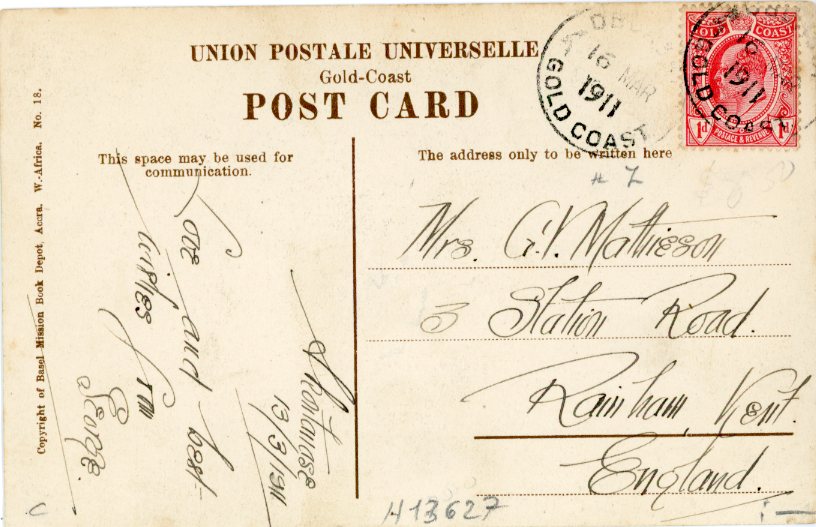 UNION POSTALE UNIVERSELLE
Gold-Coast
POST CARD
This space may be used for
communication.
The address only to be written here
Copyright of Basel Mission Book Depot, Accra. W.-Africa. No. 18.
16 MAR
1911
GOLD COAST
GOLD COAST
1d POSTAGE & REVENUE 1d
16
1911
GOLD COAST
Mrs. G.V. Mathieson
3 Station Road.
Rainham, Kent.
England.
13/3/1911
Love and best
wishes from
George.
H13627
C